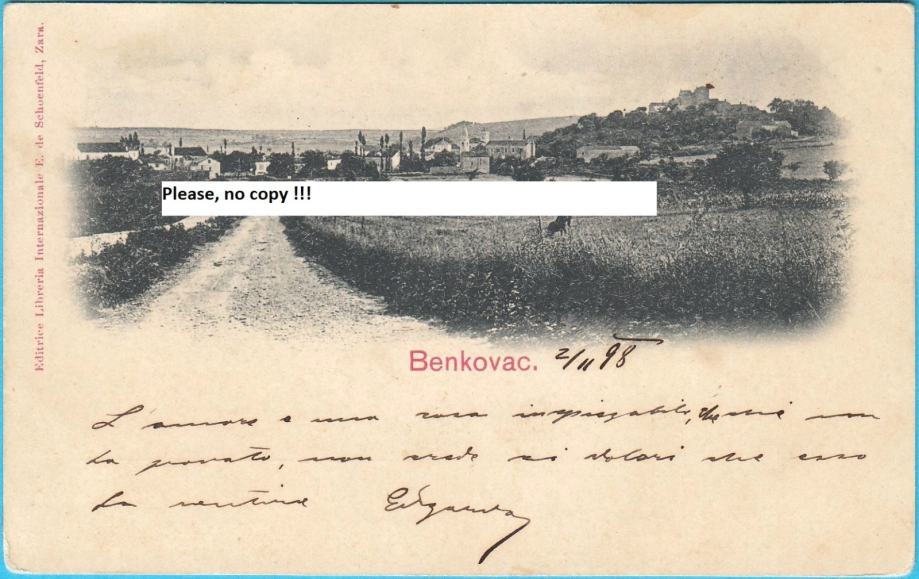 Editrice Libreria Internazionale E. de Schoenfeld, Zara.
Please, no copy !!!
Benkovac. 2/11 98
L'amore e una cosa inspiegabile, che chi non
ha provato, non crede ai dolori che esso
fa sentire